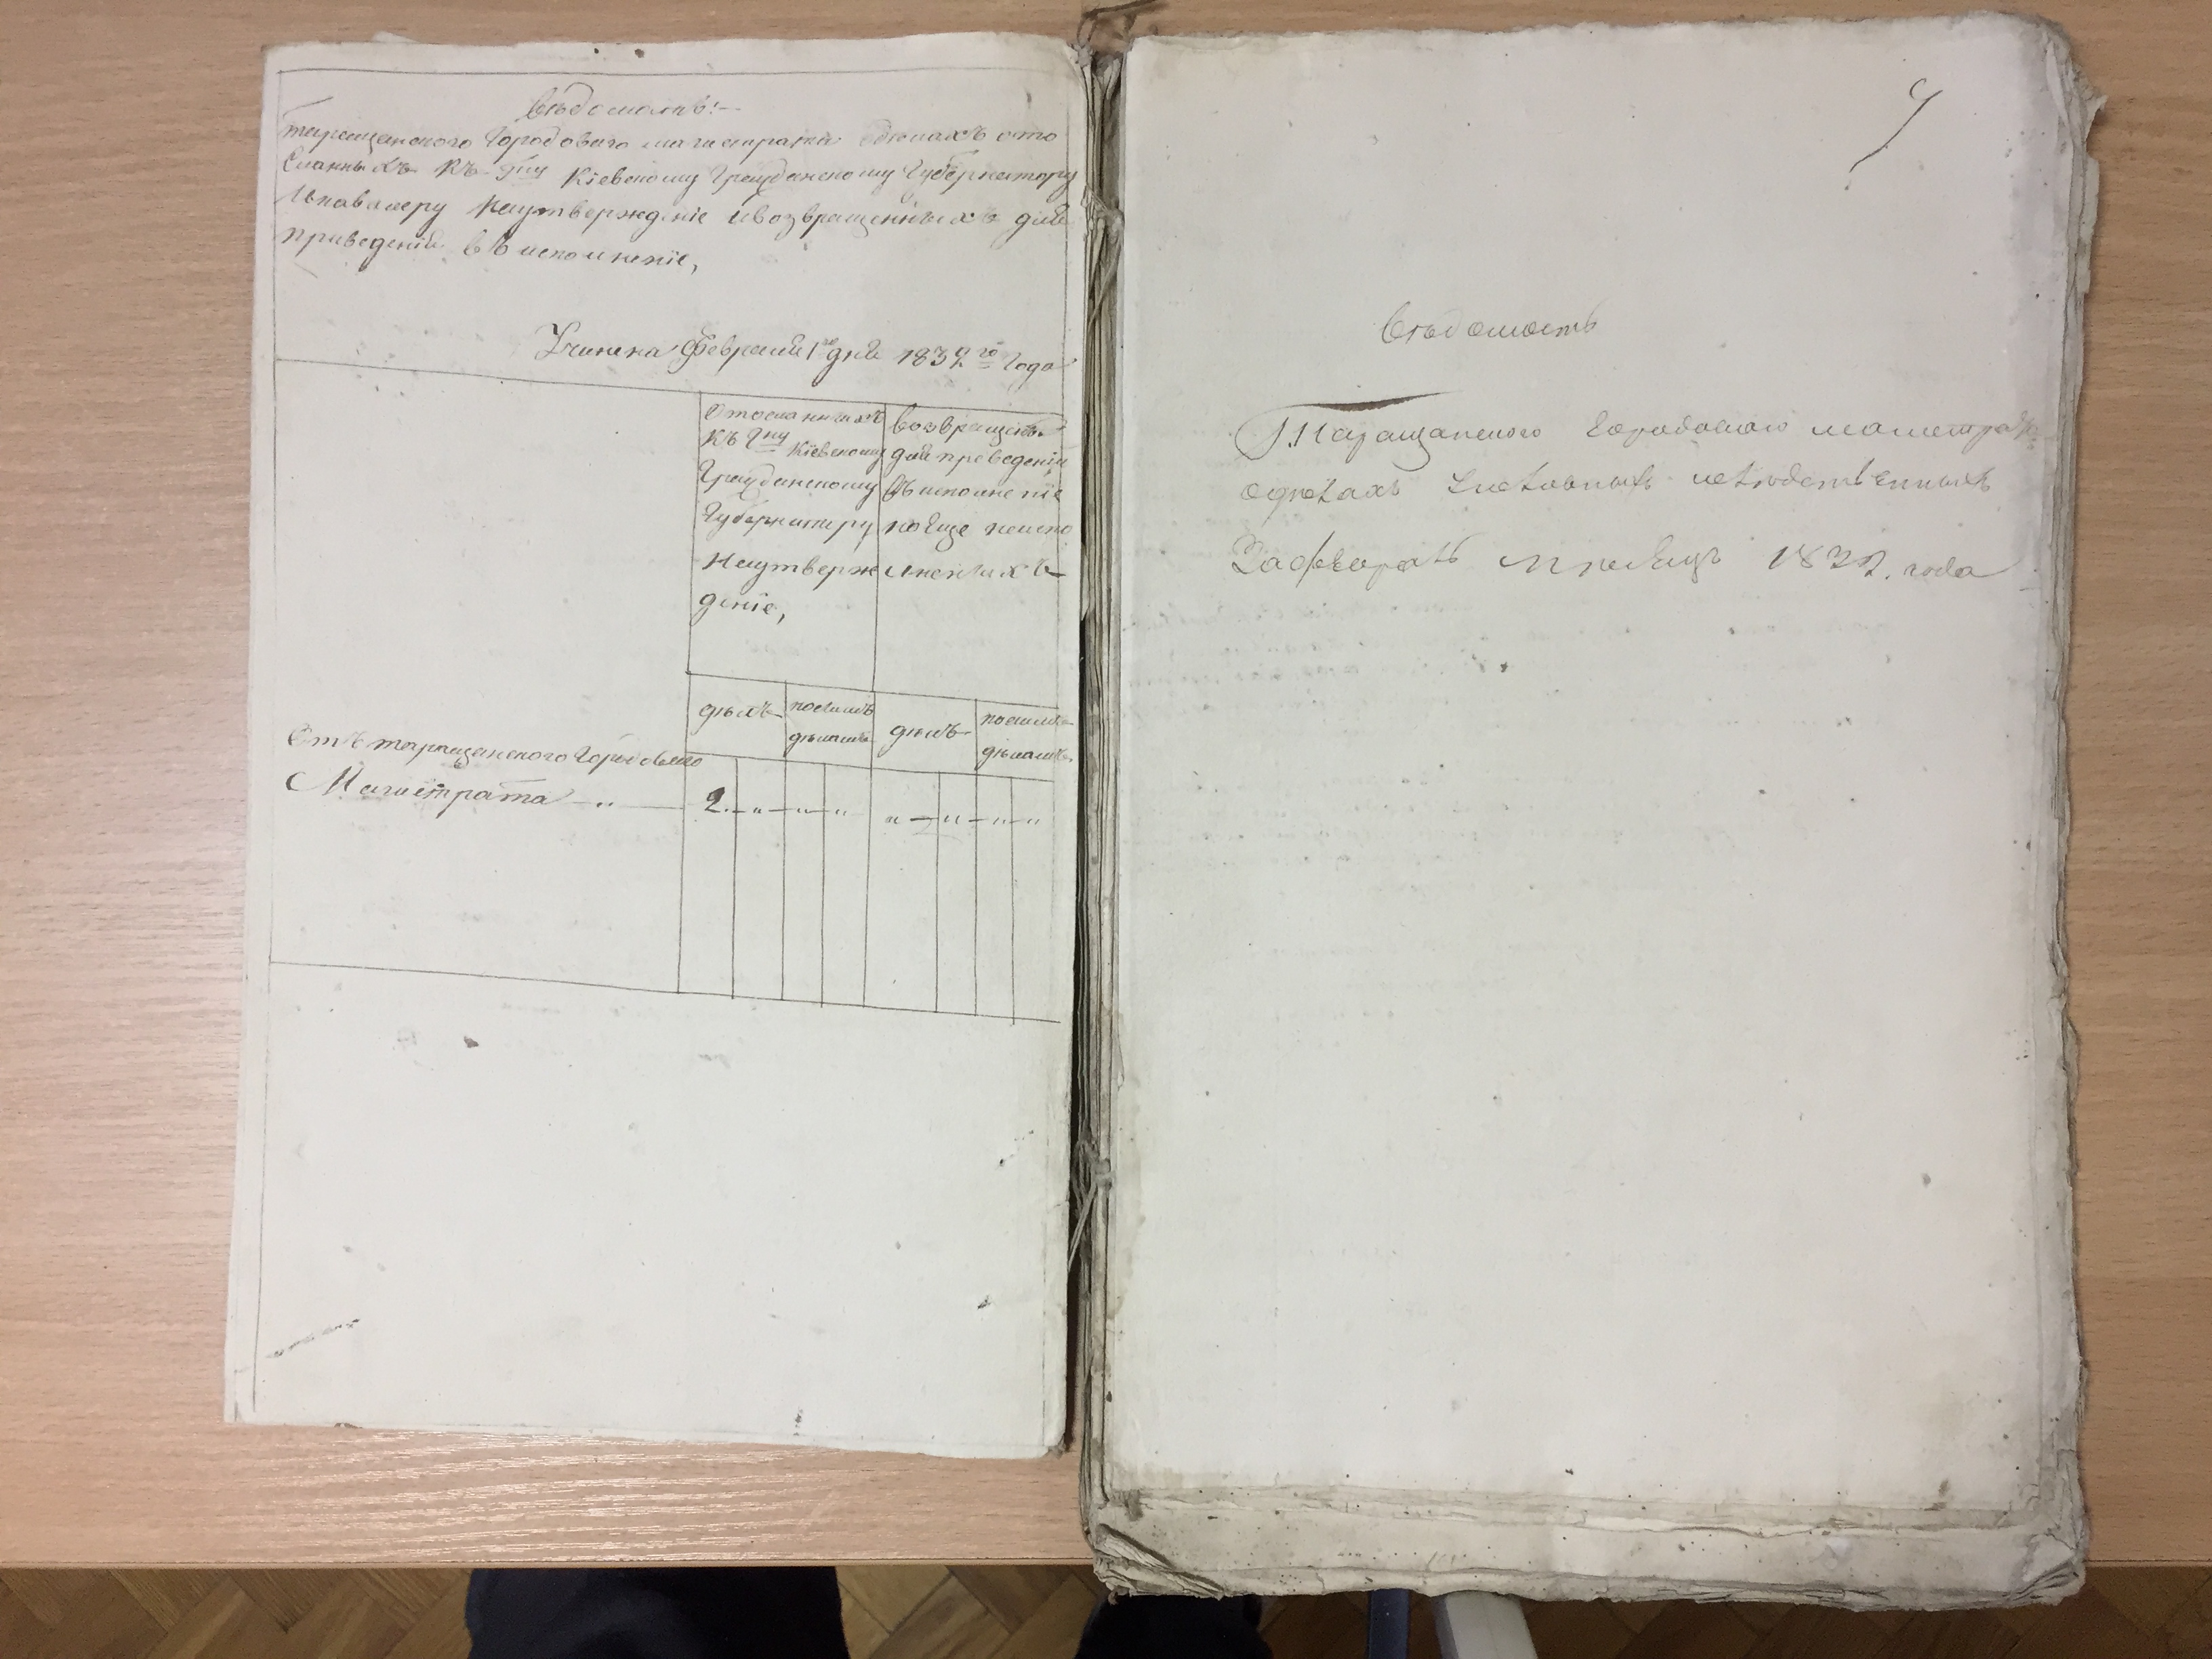 Вѣдомость:
таращанского Городового магистрата одѣлахъ ото
сланныхъ къ Гну Кіевскому Гражданскому Губернатору
Икавалеру наутвержденіе ивозвращенныхъ для
приведенія въ исполненіе,
Учинена Февраля 1го дня 1832го года
Отосланныхъ
къ Гну Кіевскому
Гражданскому
Губернатору
наутверж
деніе,
возвращен.
для преведенія
въ исполненіе
но еще неиспо
лненныхъ
дѣлъ
посимъ
дѣламъ
дѣлъ
посимъ
дѣламъ
Отъ таращанского Городового
Магистрата — „ — 2. — „ — „ — „ „ — „ — „ — „
Вѣдомость
Таращанского Городоваго магистрата
одѣлахъ
Зафевраль Мѣсяцъ 1832. года